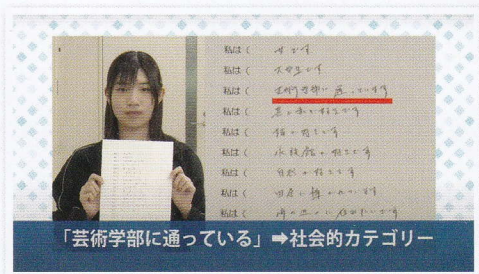 私は( 女です
私は( 大学生です
私は( 芸術学部に通っています
私は( 黒い布が好きです
私は( 猫が好きです
私は( 水族館が好きです
私は( 自然が好きです
私は(
私は( 海の近くに住みたいです
「芸術学部に通っている」➡社会的カテゴリー